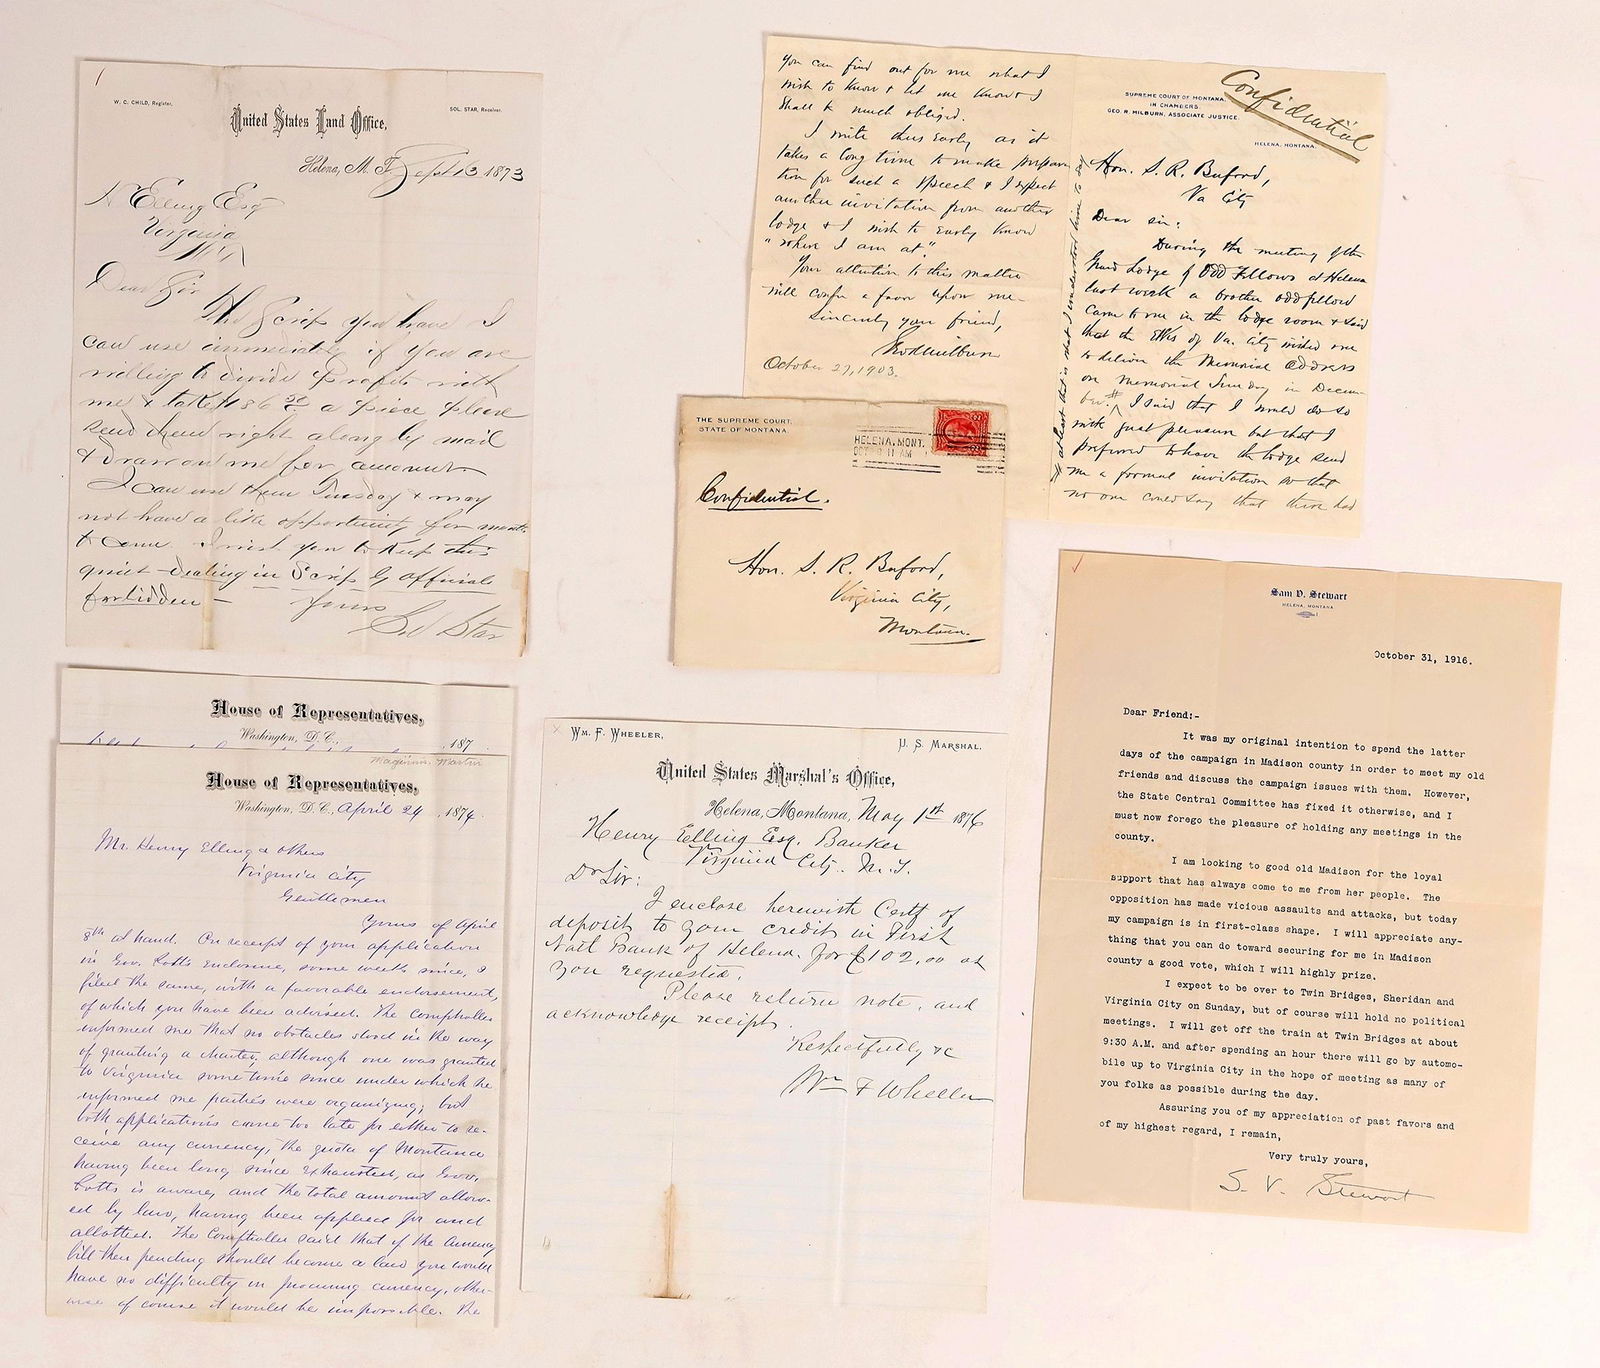 W. C. CHILD, Register.
SOL. STAR, Receiver.
United States Land Office,
Helena, M. T. Sept 13 1873
H Elling Esq
Virginia
Dear Sir
The Scrip you have I
can use immediately if you are
willing to divide profits with
me & take $186 a piece please
send them right along by mail
& draw on me for amount
I can use them Tuesday & may
not have a like opportunity for months
to come. I wish you to keep this
quiet dealing in Scrip by officials
forbidden –
Yours
Sol Star
you can find out for me what I
wish to know & let me know & I
shall be much obliged.
I write thus early as it
takes a long time to make prepara-
tion for such a speech & I expect
another invitation from another
lodge & I wish to early know
"where I am at".
Your attention to this matter
will confer a favor upon me –
Sincerely your friend,
Geo R Milburn
October 27, 1903.
Confidential
SUPREME COURT OF MONTANA.
IN CHAMBERS.
GEO. R. MILBURN, ASSOCIATE JUSTICE.
HELENA, MONTANA.
Hon. S. R. Buford,
Va City
Dear sir:
During the meeting of the
Grand Lodge of Odd Fellows at Helena
last week a brother oddfellow
came to me in the lodge room & said
that the Elks of Va. City wished me
to deliver the Memorial Address
on Memorial Sunday in Decem-
ber.# I said that I would do so
with great pleasure but that I
preferred to have the lodge send
me a formal invitation so that
no one could say that there had
# at least that is what I understood him to say
THE SUPREME COURT,
STATE OF MONTANA.
HELENA, MONT.
11 AM
Confidential.
Hon. S. R. Buford,
Virginia City,
Montana.
House of Representatives,
Washington, D.C., 187
Maginnis, Martin
House of Representatives,
Washington, D.C., April 24, 1874.
Mr. Henry Elling & others
Virginia City
Gentlemen
Yours of April
8th at hand. On receipt of your application
in Gov. Potts enclosure, some weeks since, I
filed the same, with a favorable endorsement,
of which you have been advised. The Comptroller
informed me that no obstacles stood in the way
of granting a charter, although one was granted
to Virginia some time since under which he
informed me parties were organizing; but
both applications came too late for either to re-
ceive any currency, the quota of Montana
having been long since exhausted, as Gov.
Potts is aware, and the total amount allow-
ed by law, having been applied for and
allotted. The Comptroller said that if the Currency
bill then pending should become a law you would
have no difficulty in procuring currency, other-
wise of course it would be impossible. The
WM. F. WHEELER,
U. S. MARSHAL.
United States Marshal's Office,
Helena, Montana, May 1st 1876
Henry Elling Esq. Banker
Virginia City. M. T.
Dr Sir:
I enclose herewith Certf of
deposit to your credit in First
Natl Bank of Helena. for $102.00 as
you requested.
Please return note, and
acknowledge receipt.
Respectfully &c
Wm F Wheeler
Sam V. Stewart
HELENA, MONTANA
October 31, 1916.
Dear Friend:-
It was my original intention to spend the latter
days of the campaign in Madison county in order to meet my old
friends and discuss the campaign issues with them. However,
the State Central Committee has fixed it otherwise, and I
must now forego the pleasure of holding any meetings in the
county.
I am looking to good old Madison for the loyal
support that has always come to me from her people. The
opposition has made vicious assaults and attacks, but today
my campaign is in first-class shape. I will appreciate any-
thing that you can do toward securing for me in Madison
county a good vote, which I will highly prize.
I expect to be over to Twin Bridges, Sheridan and
Virginia City on Sunday, but of course will hold no political
meetings. I will get off the train at Twin Bridges at about
9:30 A.M. and after spending an hour there will go by automo-
bile up to Virginia City in the hope of meeting as many of
you folks as possible during the day.
Assuring you of my appreciation of past favors and
of my highest regard, I remain,
Very truly yours,
S. V. Stewart